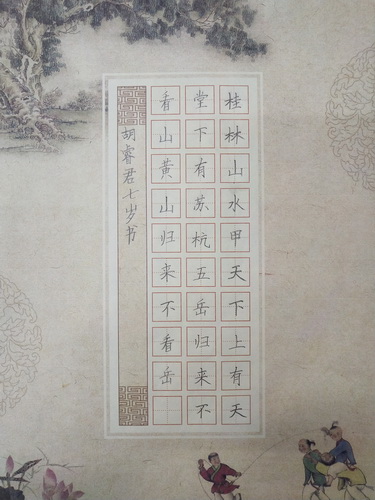 桂林山水甲天下上有天
堂下有苏杭五岳归来不
看山黄山归来不看岳
胡睿君七岁书